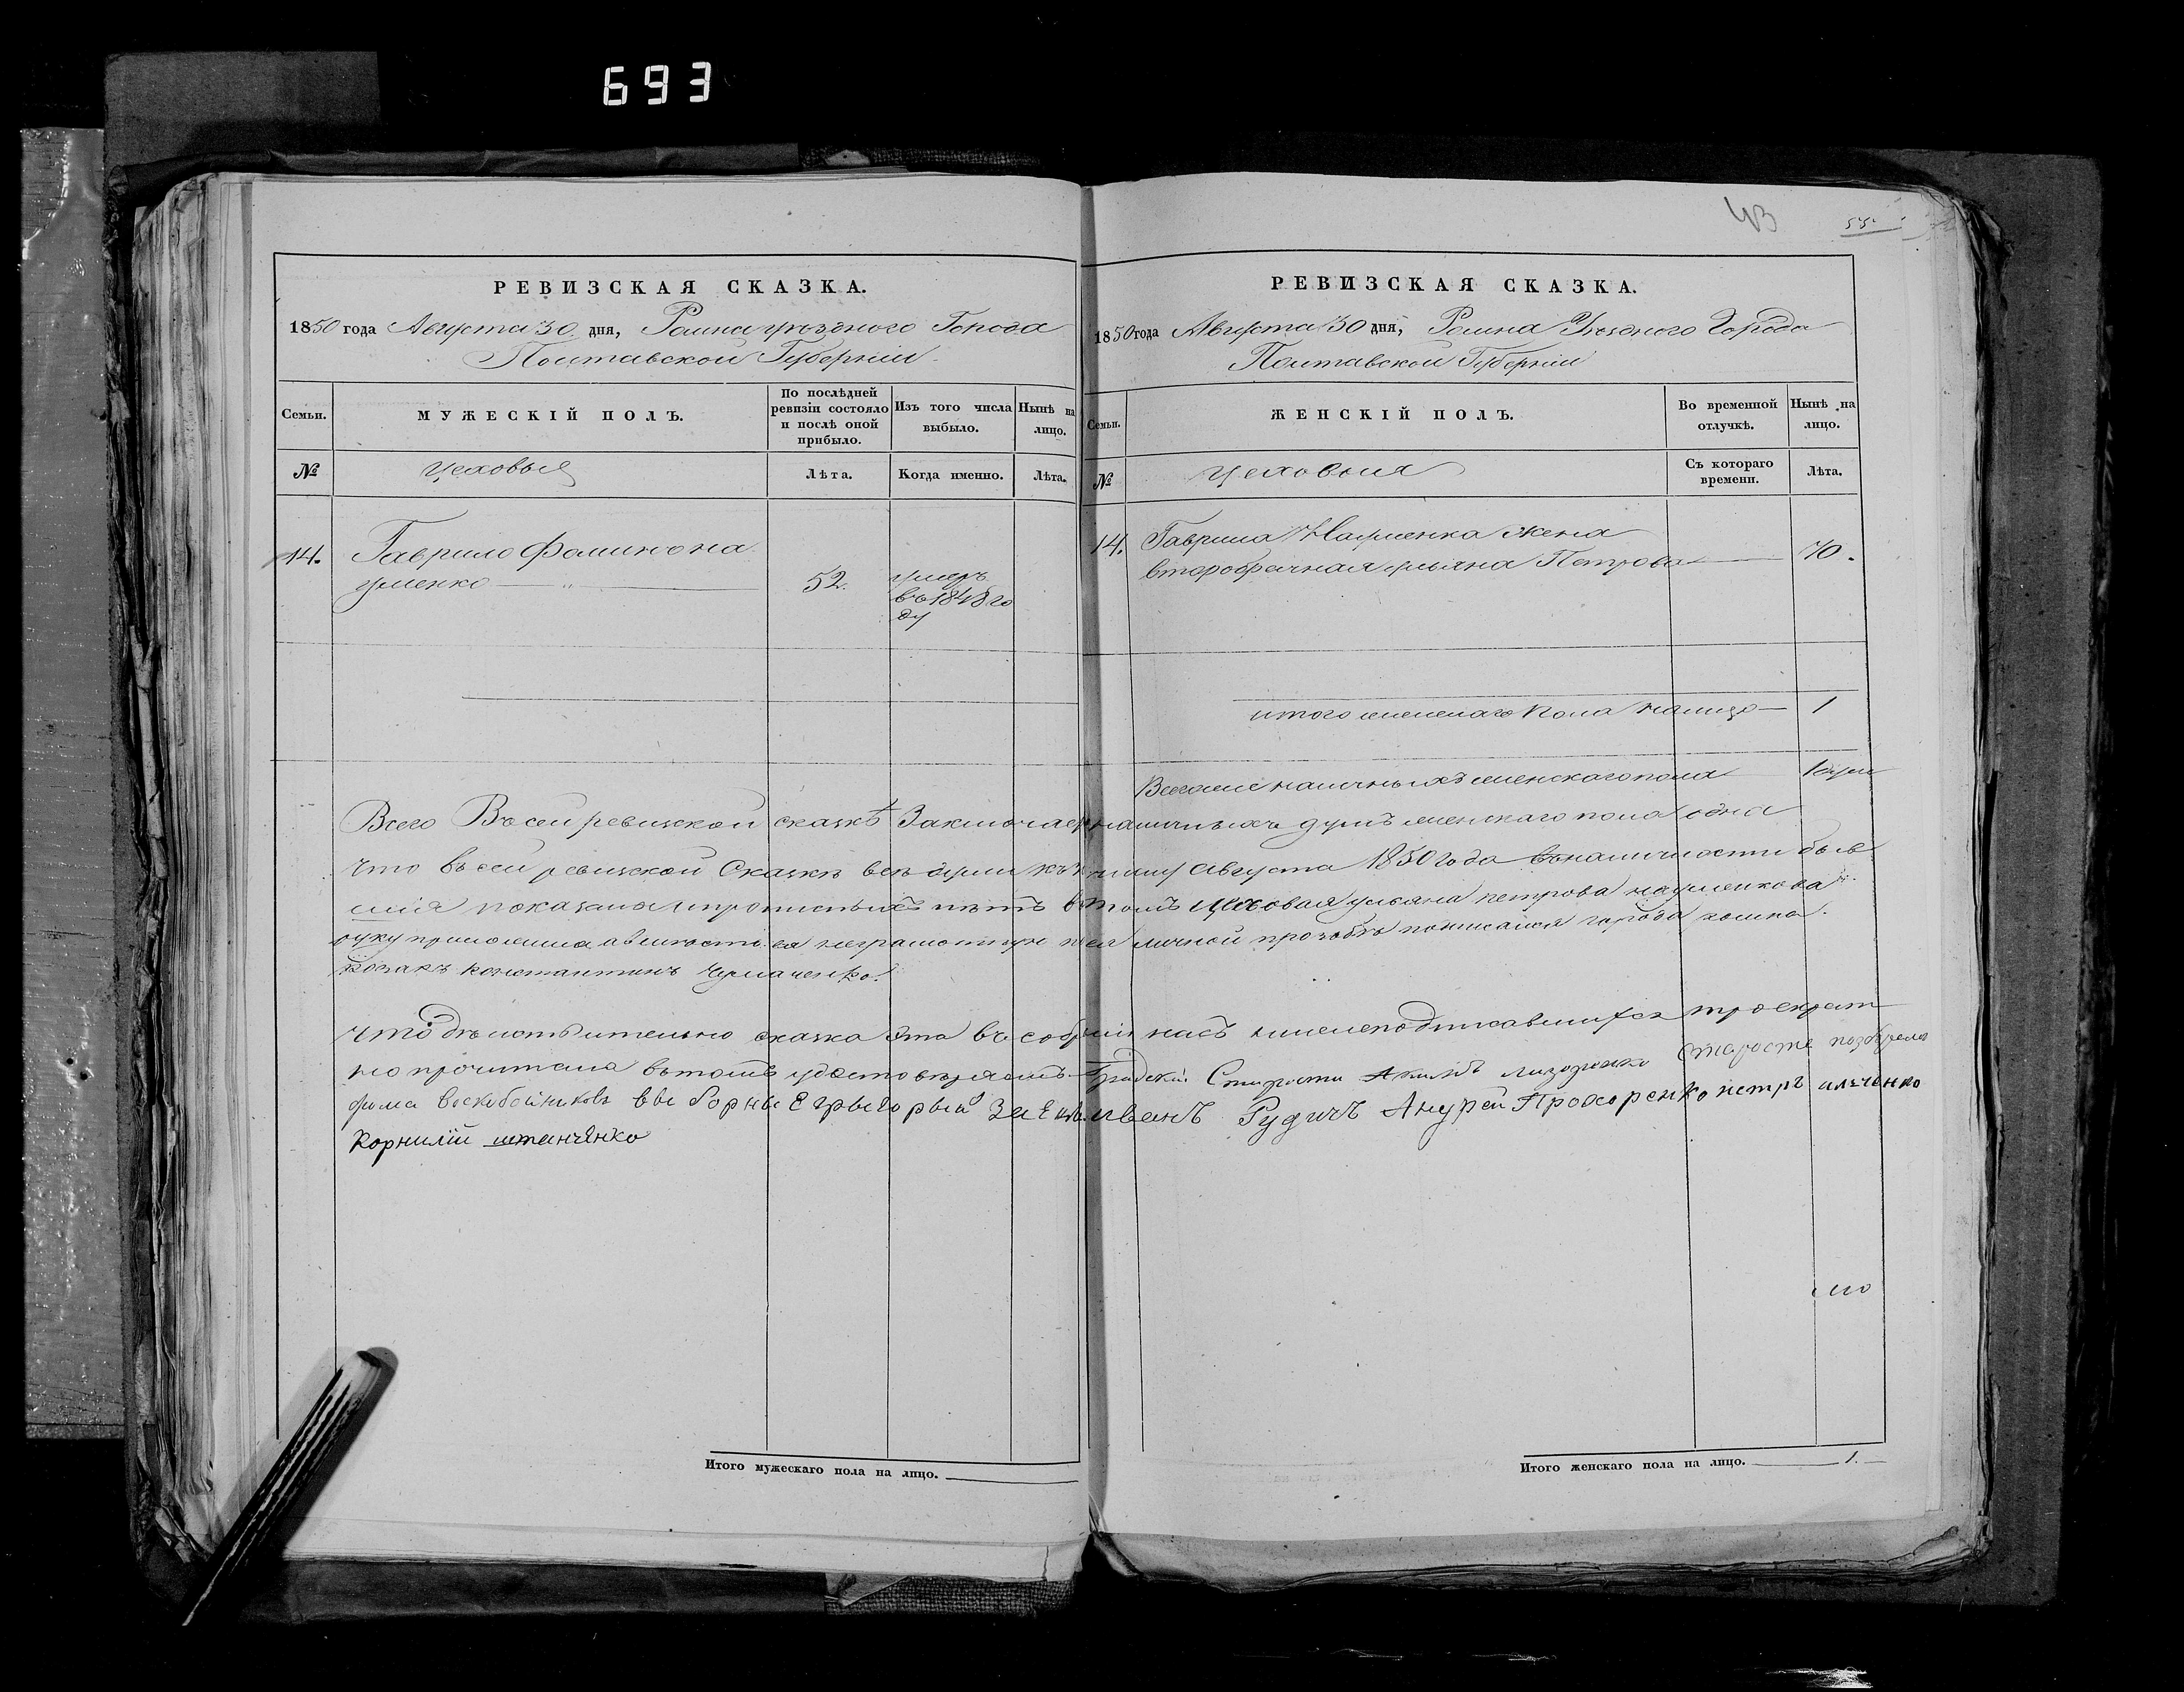 693
43
55
РЕВИЗСКАЯ СКАЗКА.
1850 года Августа 30 дня, Ромна уезднаго Города
Полтавской Губерніи
Семьи.
МУЖЕСКІЙ ПОЛЪ.
По послѣдней ревизіи состояло и послѣ оной прибыло.
Изъ того числа выбыло.
Нынѣ на лицо.
№
Цеховые
Лѣта.
Когда именно.
Лѣта.
14.
Гаврило Фоминъ На
уменко
52.
умеръ
въ 1843 го
ду
Итого мужескаго пола на лицо.
РЕВИЗСКАЯ СКАЗКА.
1850 года Августа 30 дня, Ромна Уезднаго Города
Полтавской Губерніи
Семьи.
ЖЕНСКІЙ ПОЛЪ.
Во временной отлучкѣ.
Нынѣ на лицо.
№
Цеховыя
Съ котораго времени.
Лѣта.
14.
Гаврила Науменка жена
второбрачная ульяна Петрова
70.
итого женскаго пола налицо 1
Всего наличныхъ женскаго пола 1 душа
Всего Въ сей ревизской сказкѣ Заключается наличныхъ душъ женскаго пола одна
Что въ сей ревизской Сказкѣ всѣ души къ числу Августа 1850 года въ наличности быв
шія показаны и прописныхъ нѣтъ въ томъ Цеховая ульяна петрова науменкова
руку приложила а вместо ея неграмотную по ея личной прозьбѣ подписался города ромна
козакъ константинъ Чумаченко.
Что дѣйствительно сказка эта въ собраніи насъ нижеподписавшихся троекрат
но прочитана въ томъ удостовѣряемъ Градскій Староста Старосте
фома воскобойниковъ выборные Грыгорый иванъ Рудичъ Андрей Прохоренко петръ илченко
Корнилій штанченко
Итого женскаго пола на лицо. 1.